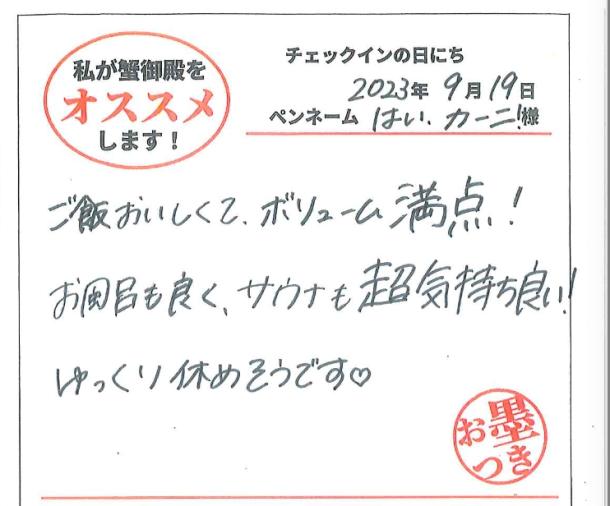 私が蟹御殿を
オススメ
します！
チェックインの日にち
2023年 9月19日
ペンネーム はい、カーニ!様
ご飯おいしくて、ボリューム満点!
お風呂も良く、サウナも超気持ち良い!
ゆっくり休めそうです♡
お墨
つき